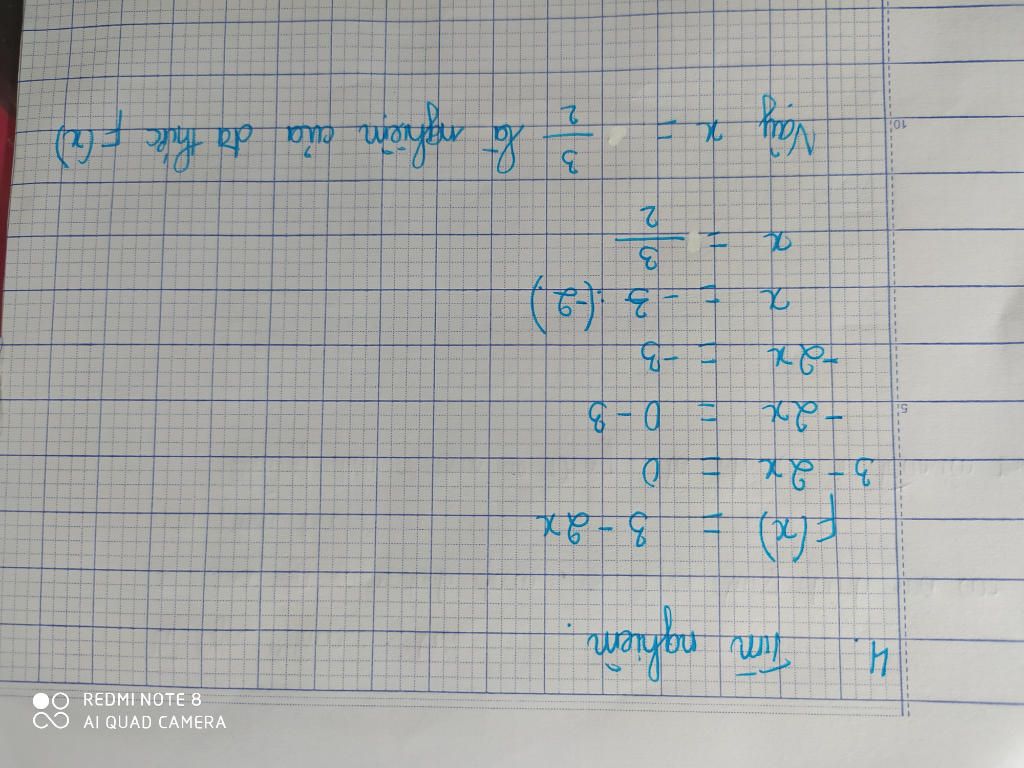 4. Tìm nghiệm.
F(x) = 3 - 2x
3 - 2x = 0
- 2x = 0 - 3
- 2x = - 3
x = - 3 : (-2)
x = 3/2
Vậy x = 3/2 là nghiệm của đa thức F(x)
5
10
REDMI NOTE 8
AI QUAD CAMERA